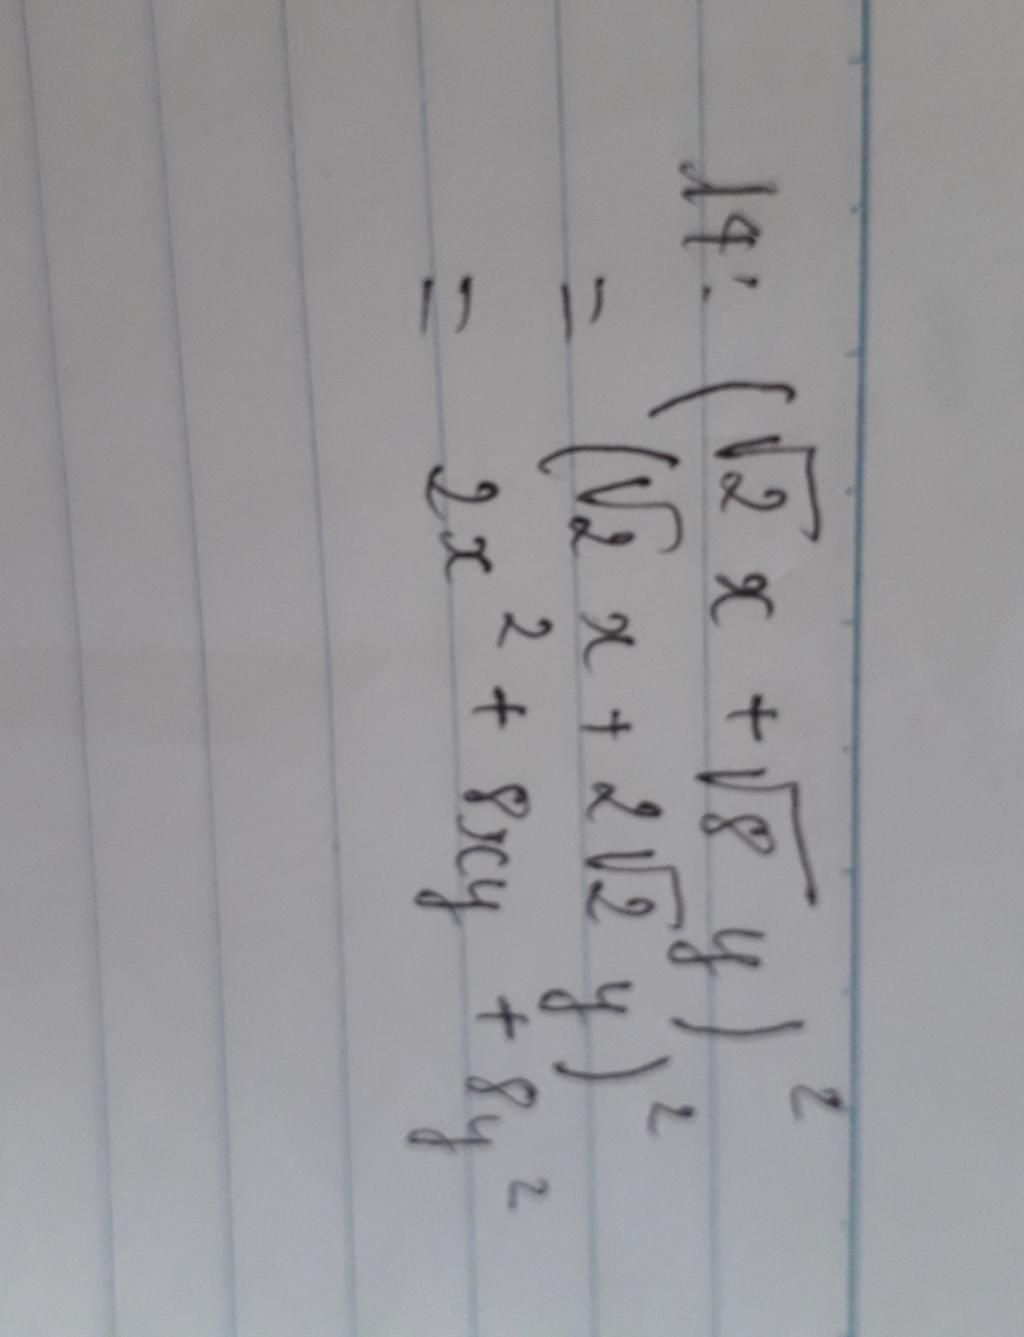 14: (√2 x + √8 y)²
= (√2 x + 2√2 y)²
= 2x² + 8xy + 8y²